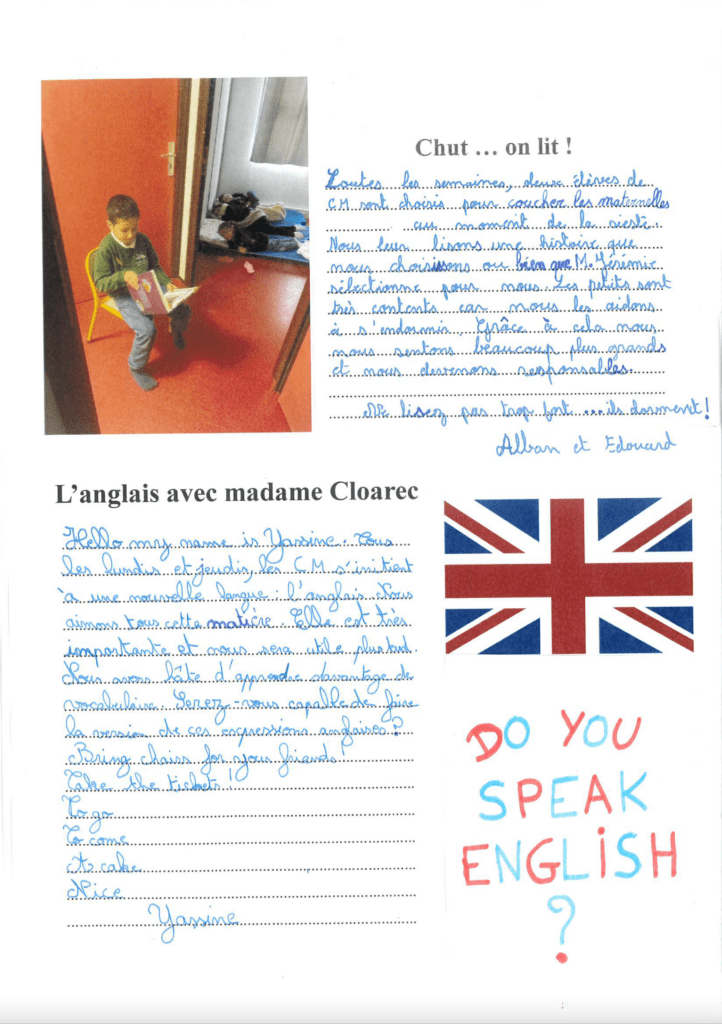 Chut … on lit !
Toutes les semaines, deux élèves de
CM sont choisis pour coucher les maternelles
au moment de la sieste.
Nous leur lisons une histoire que
nous choisissons ou bien que M. Jérémie
sélectionne pour nous. Les petits sont
très contents car nous les aidons
à s'endormir. Grâce à cela nous
nous sentons beaucoup plus grands
et nous devenons responsables.
Ne lisez pas trop fort ...ils dorment !
Alban et Edouard
L'anglais avec madame Cloarec
Hello my name is Yassine. Tous
les lundis et jeudis, les CM s'initient
à une nouvelle langue : l'anglais. Nous
aimons tous cette matière. Elle est très
importante et nous sera utile plus tard.
Nous avons hâte d'apprendre davantage de
vocabulaire. Serez-vous capable de faire
la version de ces expressions anglaises ?
Bring chairs for your friends !
Take the tickets !
To go
To come
A cake
Nice
Yassine
DO YOU
SPEAK
ENGLISH
?